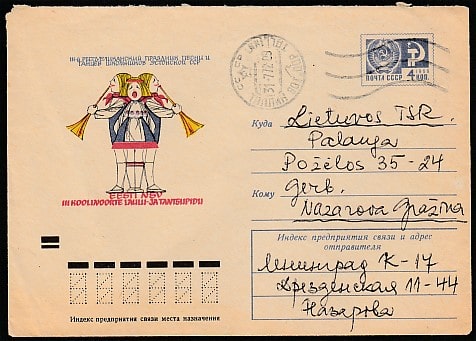 III-й РЕСПУБЛИКАНСКИЙ ПРАЗДНИК ПЕСНИ И
ТАНЦЕВ ШКОЛЬНИКОВ ЭСТОНСКОЙ ССР
EESTI NSV
III KOOLINOORTE LAULU- JA TANTSUPIDU
TALLINN
ПОЧТА СССР
1966
4 КОП.
Куда
Lietuvos TSR.
Palanga
Požėlos 35-24
Кому
gerb.
Nazarova Gražina
Индекс предприятия связи и адрес
отправителя
Ленинград К-17
Дрезденская 11-44
Назарова
Индекс предприятия связи места назначения